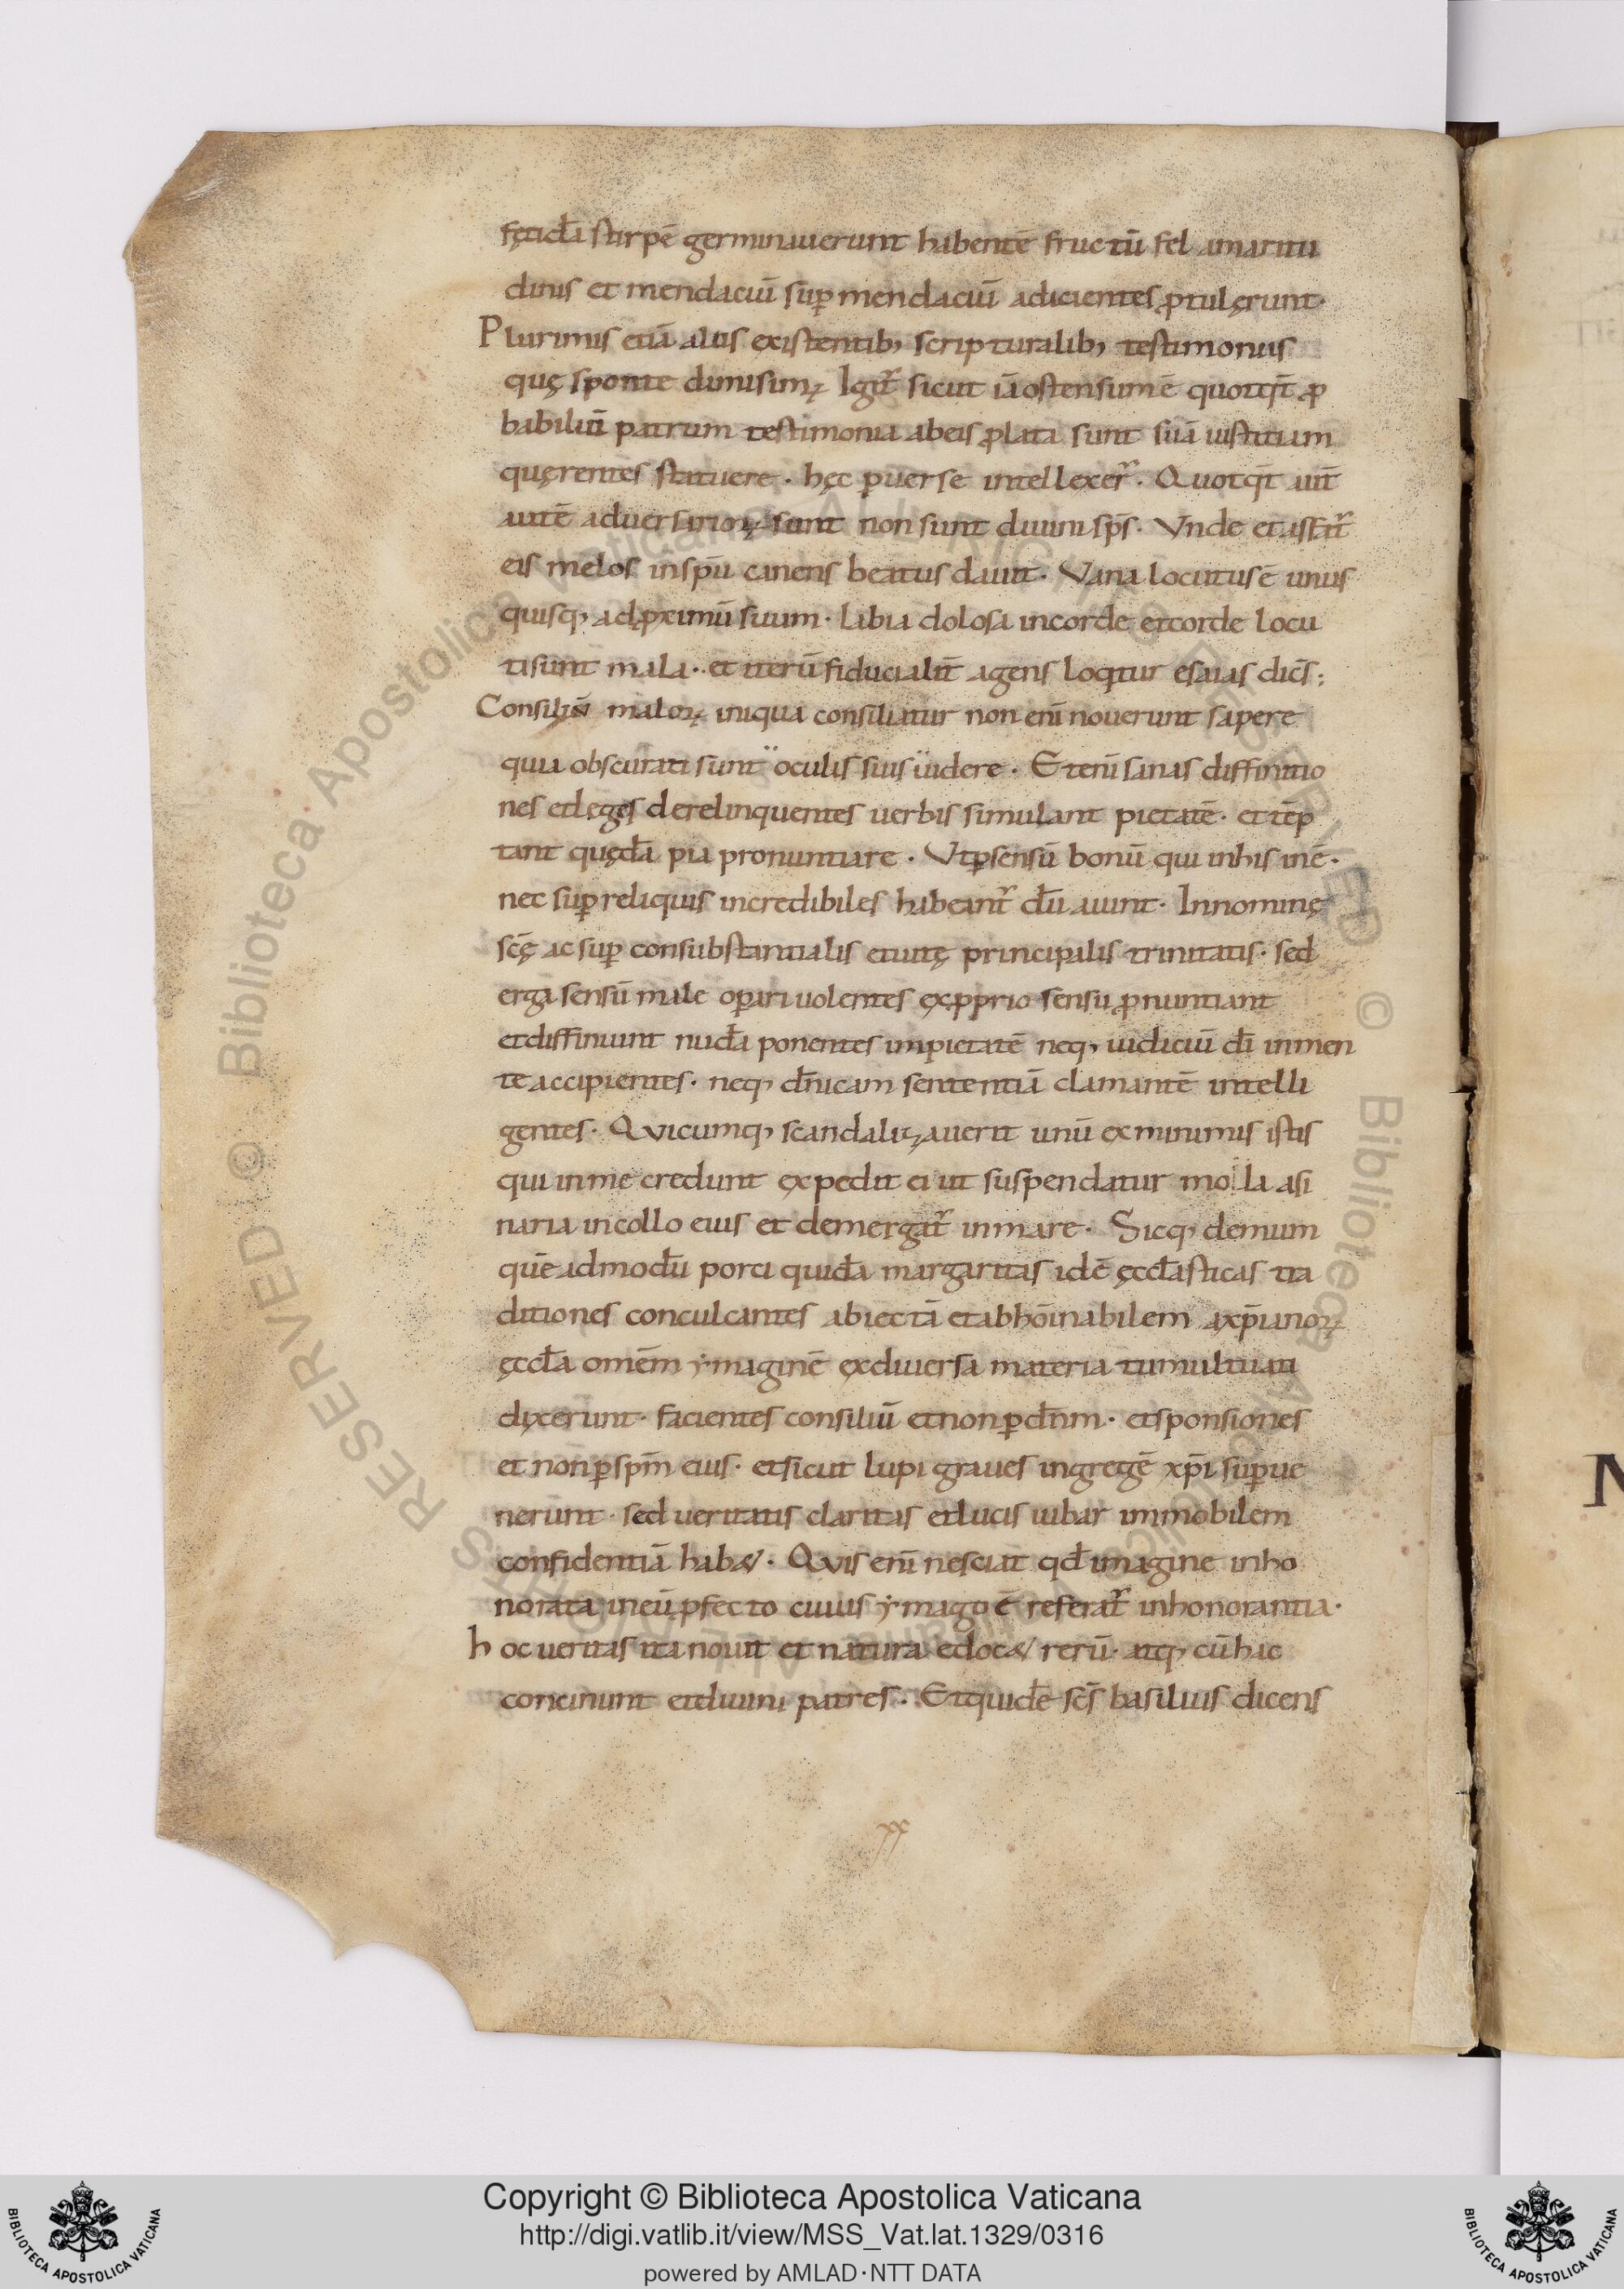 fęticd̄a stirpē germinauerunt habentē fructū fel amaritu
dinis et mendaciū sup̱ mendaciū adicientes ꝓtulęrunt·
Plurimis etiā aliis existentib; scripturalib; testimoniis
quę sponte dimisimꝰ Igit̄ sicut iā ostensum ē quotqt̄ ꝓ
babiliū patrum testimonia abeis ꝓlata sunt suā iustitiam
quęrentes statuere· hęc ꝑuerse intellexer̄· Quotqt̄ uit̄
autē aduersarioꝝ sunt non sunt diuini sp̄s· Vnde et asfat̄
eis melos in sp̄u canens beatus dauit· Vana locutus ē unus
quisq; ad ꝓximū suum· labia dolosa incorde etcorde locu
tisunt mala· et iterū fiducialit̄ agens loqitur esaias dic̄s;
Consiliū maloꝝ iniqua consiliatur non enī nouerunt sapere
quia obscurati sunt oculis suis uidere· Etenī sanas diffinitio
nes etleges derelinquentes uerbis simulant pietatē· et tēp
tant quędā pia pronuntiare· Vt ꝑsensū bonū qui inhis inē·
nec suꝑ reliquis incredibiles habeant̄ dū aiunt· Innominę
sc̄ę ac suꝑ consubstantialis etuitę principalis trinitatis· sed
erga sensū male oꝑari uolentes exꝓprio sensu ꝓnuntiant
etdiffiniunt nudā ponentes impietatē neq; iudiciū dī inmen
te accipientes· neq; dn̄icam sententiā clamantē intelli
gentes· Quicumq; scandalizauerit unū exminimis istis
qui inme credunt expedit ei ut suspendatur mola asi
naria incollo eius et demergat̄ inmare· Sicq; demum
quēadmodū porci quidā margaritas idē ęccl̄asticas tra
ditiones conculcantes abiectā etabhōinabilem axp̄ianoꝝ
ęccl̄a omēm ymaginē exdiuersa materia tumultuati
dixerunt· facientes consiliū etnon ꝑ dn̄m· etsponsiones
et non ꝑ sp̄m eius· etsicut lupi graues ingregē xp̄i suꝑue
nerunt· sed ueritatis claritas etlucis iubar immobilem
confidentiā habet· Quis enī nesciat qd̄ imagine inho
norata ineū ꝓfecto cuius ymago ē referat̄ inhonorantia·
hoc ueritas ita nouit et natura edocet rerū· atq; cū hac
concinunt etdiuini patres· Etquidē sc̄s basilius dicens
xx
Copyright © Biblioteca Apostolica Vaticana
http://digi.vatlib.it/view/MSS_Vat.lat.1329/0316
powered by AMLAD·NTT DATA
BIBLIOTECA APOSTOLICA VATICANA
BIBLIOTECA APOSTOLICA VATICANA